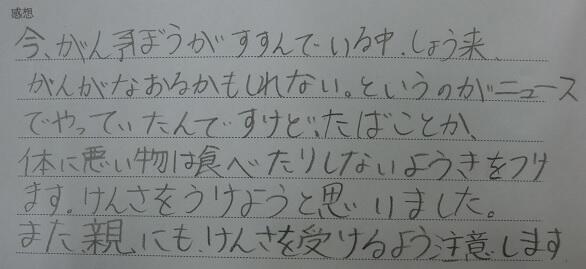 感想
今、がん予ぼうがすすんでいる中、しょう来、
がんがなおるかもしれない。というのがニュース
でやっていたんですけど、たばことか、
体に悪い物は食べたりしないようきをつけ
ます。けんさをうけようと思いました。
また親にも、けんさを受けるよう注意します